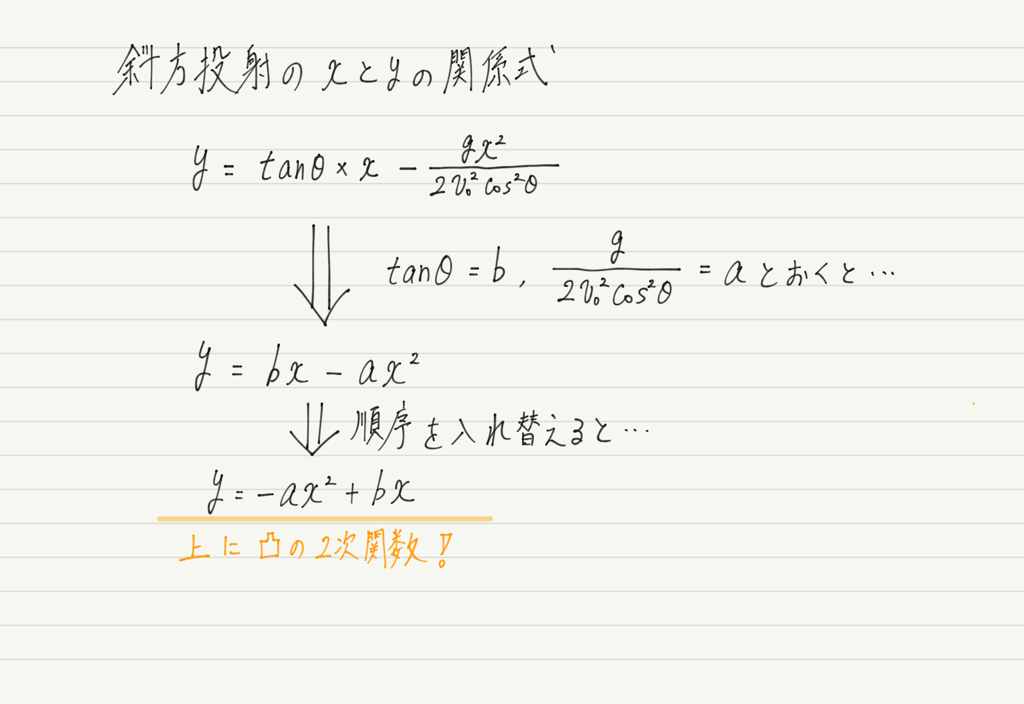 斜方投射のxとyの関係式
y = tanθ × x − gx²/2v₀²cos²θ
tanθ = b, g/2v₀²cos²θ = a とおくと…
y = bx − ax²
順序を入れ替えると…
y = −ax² + bx
上に凸の2次関数!